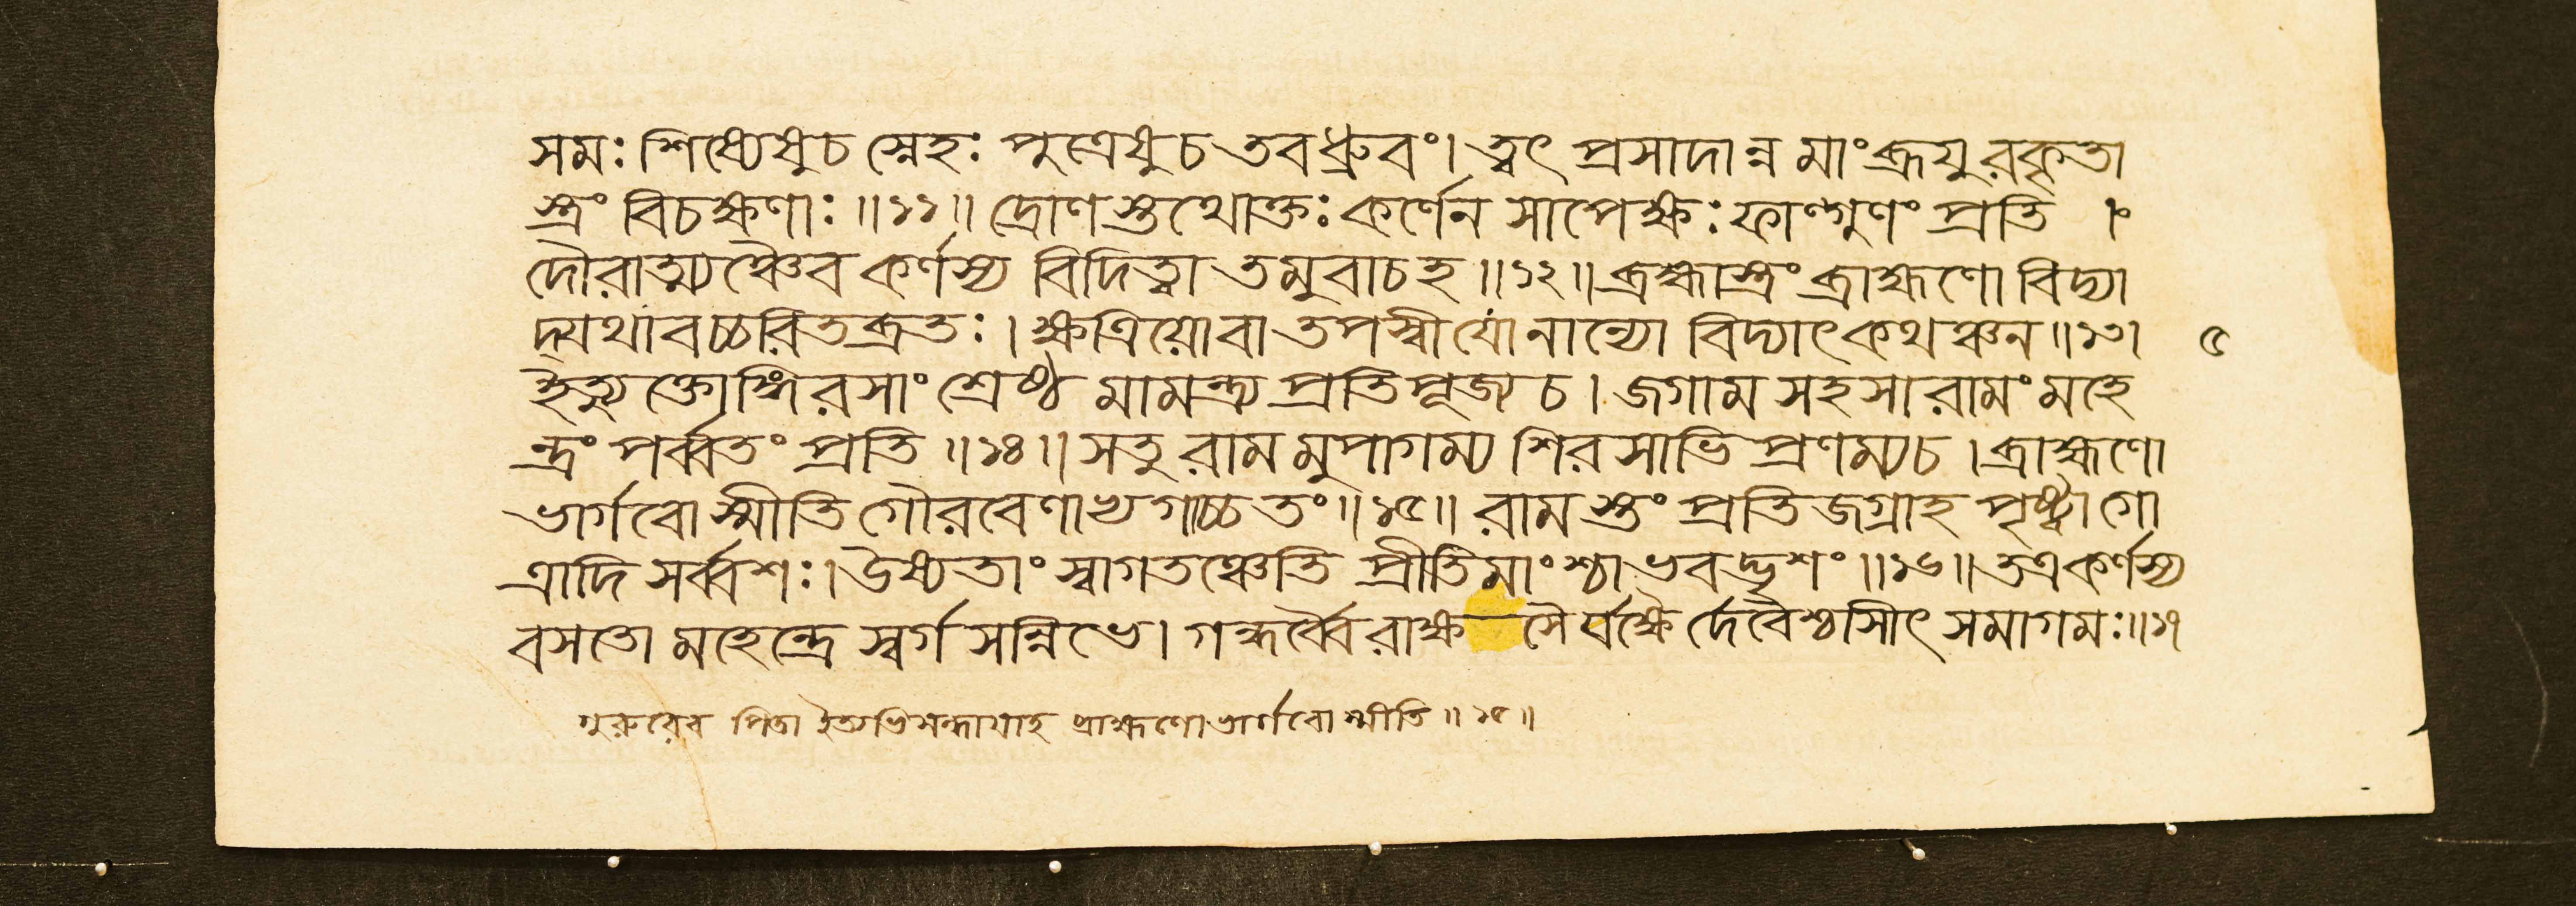 সমঃ শিষ্যেষুচ স্নেহঃ পুত্রেষুচ তবধ্রুবং। ত্বৎ প্রসাদান্ন মাংব্রূযুরকৃতা
স্ত্রং বিচক্ষণাঃ॥১১॥ দ্রোণস্তুথোক্তঃ কর্ণেন সাপেক্ষঃ ফাল্গুণং প্রতি ।
দৌরাত্ম্যঞ্চৈব কর্ণস্য বিদিত্বা তমুবাচহ॥১২॥ ব্রহ্মাস্ত্রং ব্রাহ্মণো বিদ্যা
দ্যথাবচ্চরিতব্রতঃ। ক্ষত্রিয়োবা তপস্বীযোনান্যো বিদ্যাৎকথঞ্চন॥১৩। ৫
ইত্যুক্তোঙ্গিরসাং শ্রেষ্ঠ মামন্ত্র্য প্রতিপূজ্য চ। জগাম সহসা রামং মহে
ন্দ্রং পর্ব্বতং প্রতি॥১৪॥ সতু রামমুপাগম্য শিরসাভি প্রণম্যচ। ব্রাহ্মণো
ভার্গবোস্মীতি গৌরবেণাখগচ্ছতং॥১৫॥ রামস্তুং প্রতিজগ্রাহ পৃষ্ট্বাগো
ত্রাদি সর্ব্বশঃ। উষ্যতাং স্বাগতঞ্চেতি প্রীতিমাংশ্চাভবদ্ভৃশং॥১৬॥ তত্রকর্ণস্য
বসতো মহেন্দ্রে স্বর্গসন্নিভে। গন্ধর্ব্বৈরাক্ষসৈর্যক্ষৈর্দেবৈশ্চাসীৎ সমাগমঃ॥১৭
গুরুরেব পিতা ইত্যভিসন্ধাযাহ ব্রাহ্মণোভার্গবোস্মীতি॥১৫॥